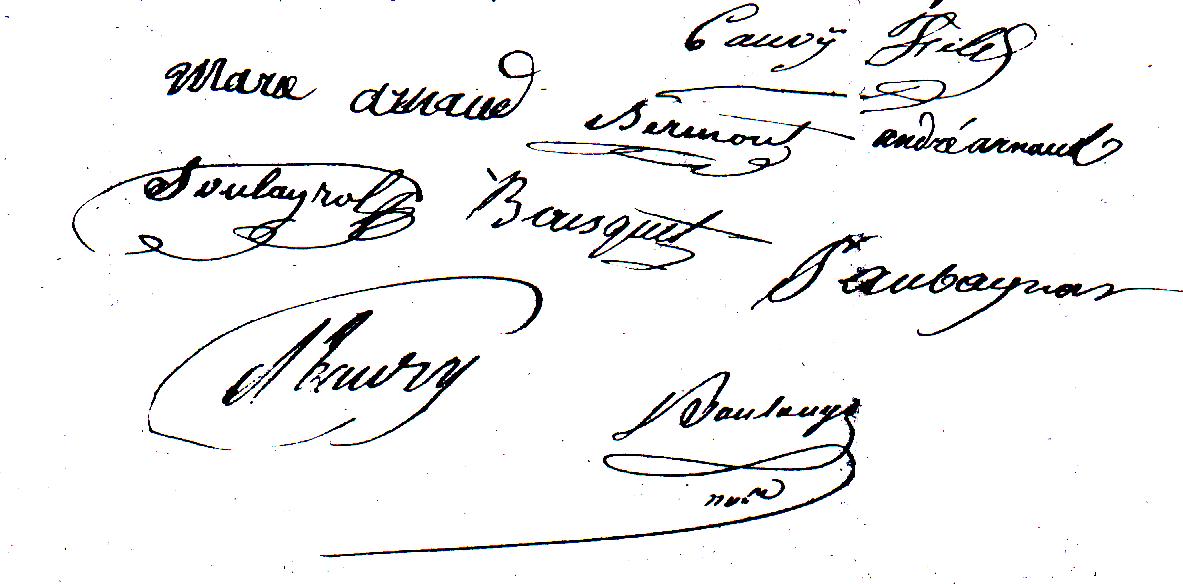 Cauvÿ Fils
Marc arnaud
Bermont andré arnaud
Soulayrol Bousquet
P. aubagnac
Fleury
Boulouys
nore